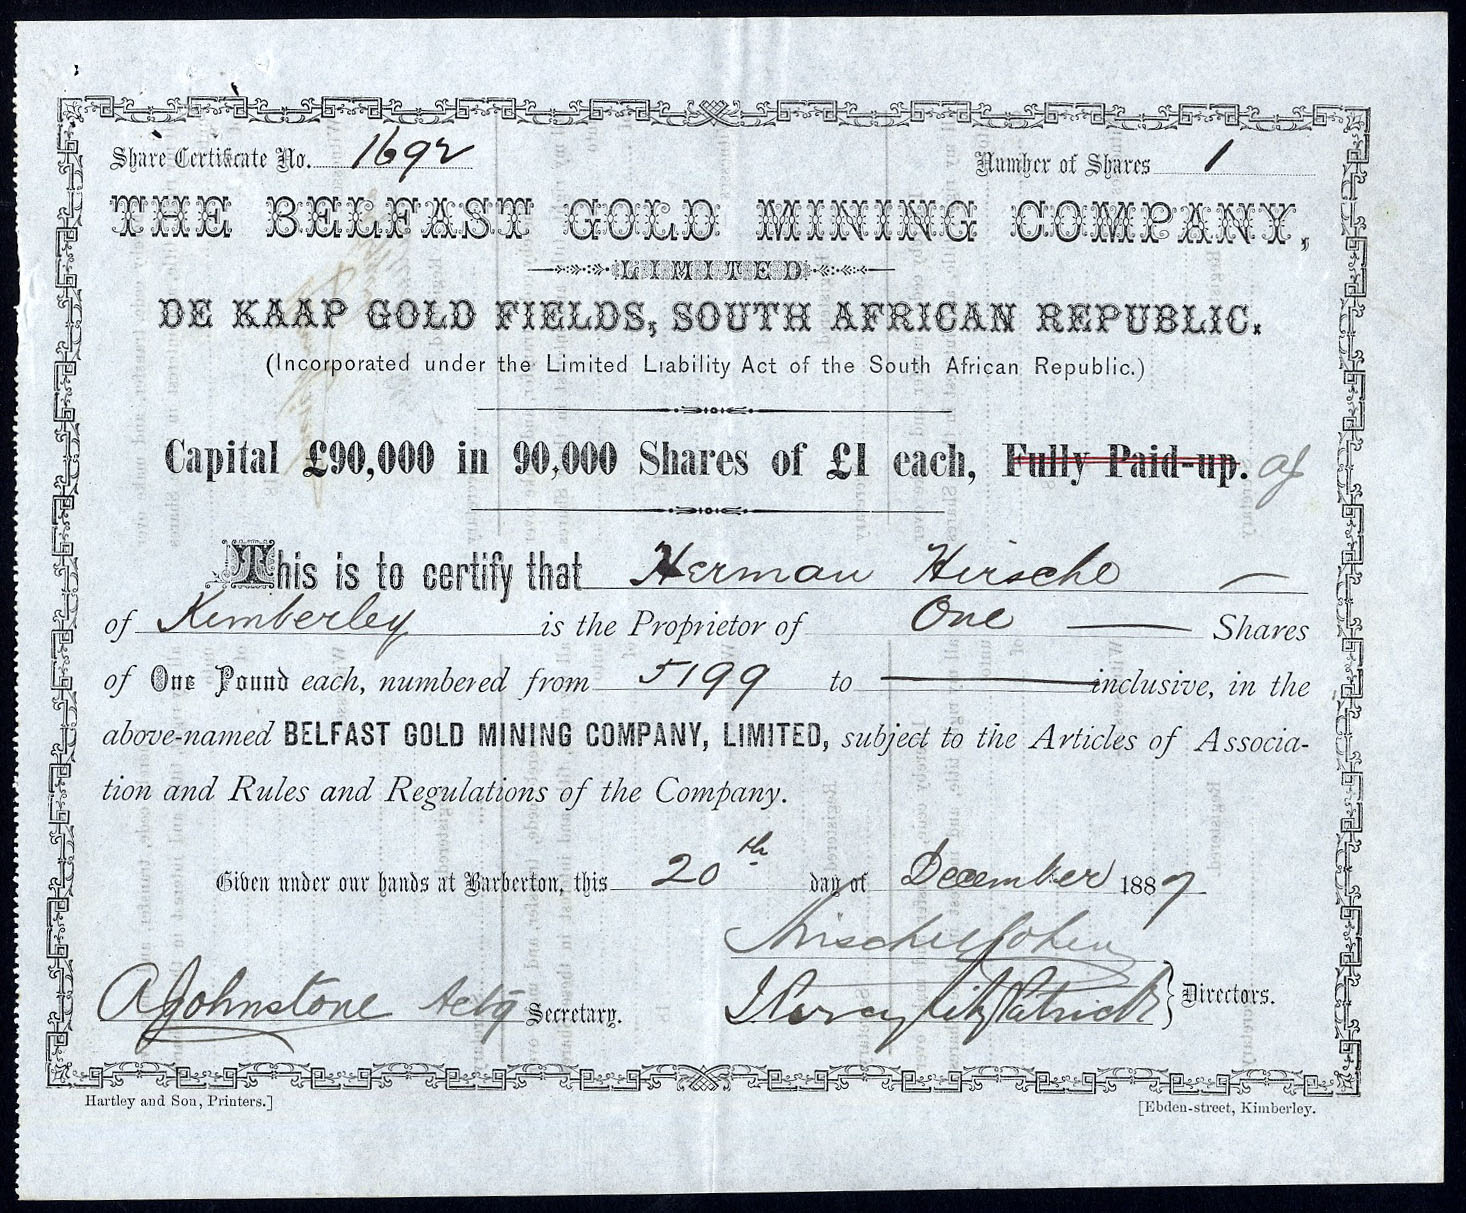 Share Certificate No. 1692 Number of Shares 1
THE BELFAST GOLD MINING COMPANY,
LIMITED
DE KAAP GOLD FIELDS, SOUTH AFRICAN REPUBLIC.
(Incorporated under the Limited Liability Act of the South African Republic.)
Capital £90,000 in 90,000 Shares of £1 each, Fully Paid-up. aj
This is to certify that Herman Hirsche
of Kimberley is the Proprietor of One Shares
of One Pound each, numbered from 5199 to inclusive, in the
above-named BELFAST GOLD MINING COMPANY, LIMITED, subject to the Articles of Associa-
tion and Rules and Regulations of the Company.
Given under our hands at Barberton, this 20th day of December 1887
Cohen
AJohnstone Actg Secretary. J Percy FitzPatrick Directors.
Hartley and Son, Printers.] [Ebden-street, Kimberley.